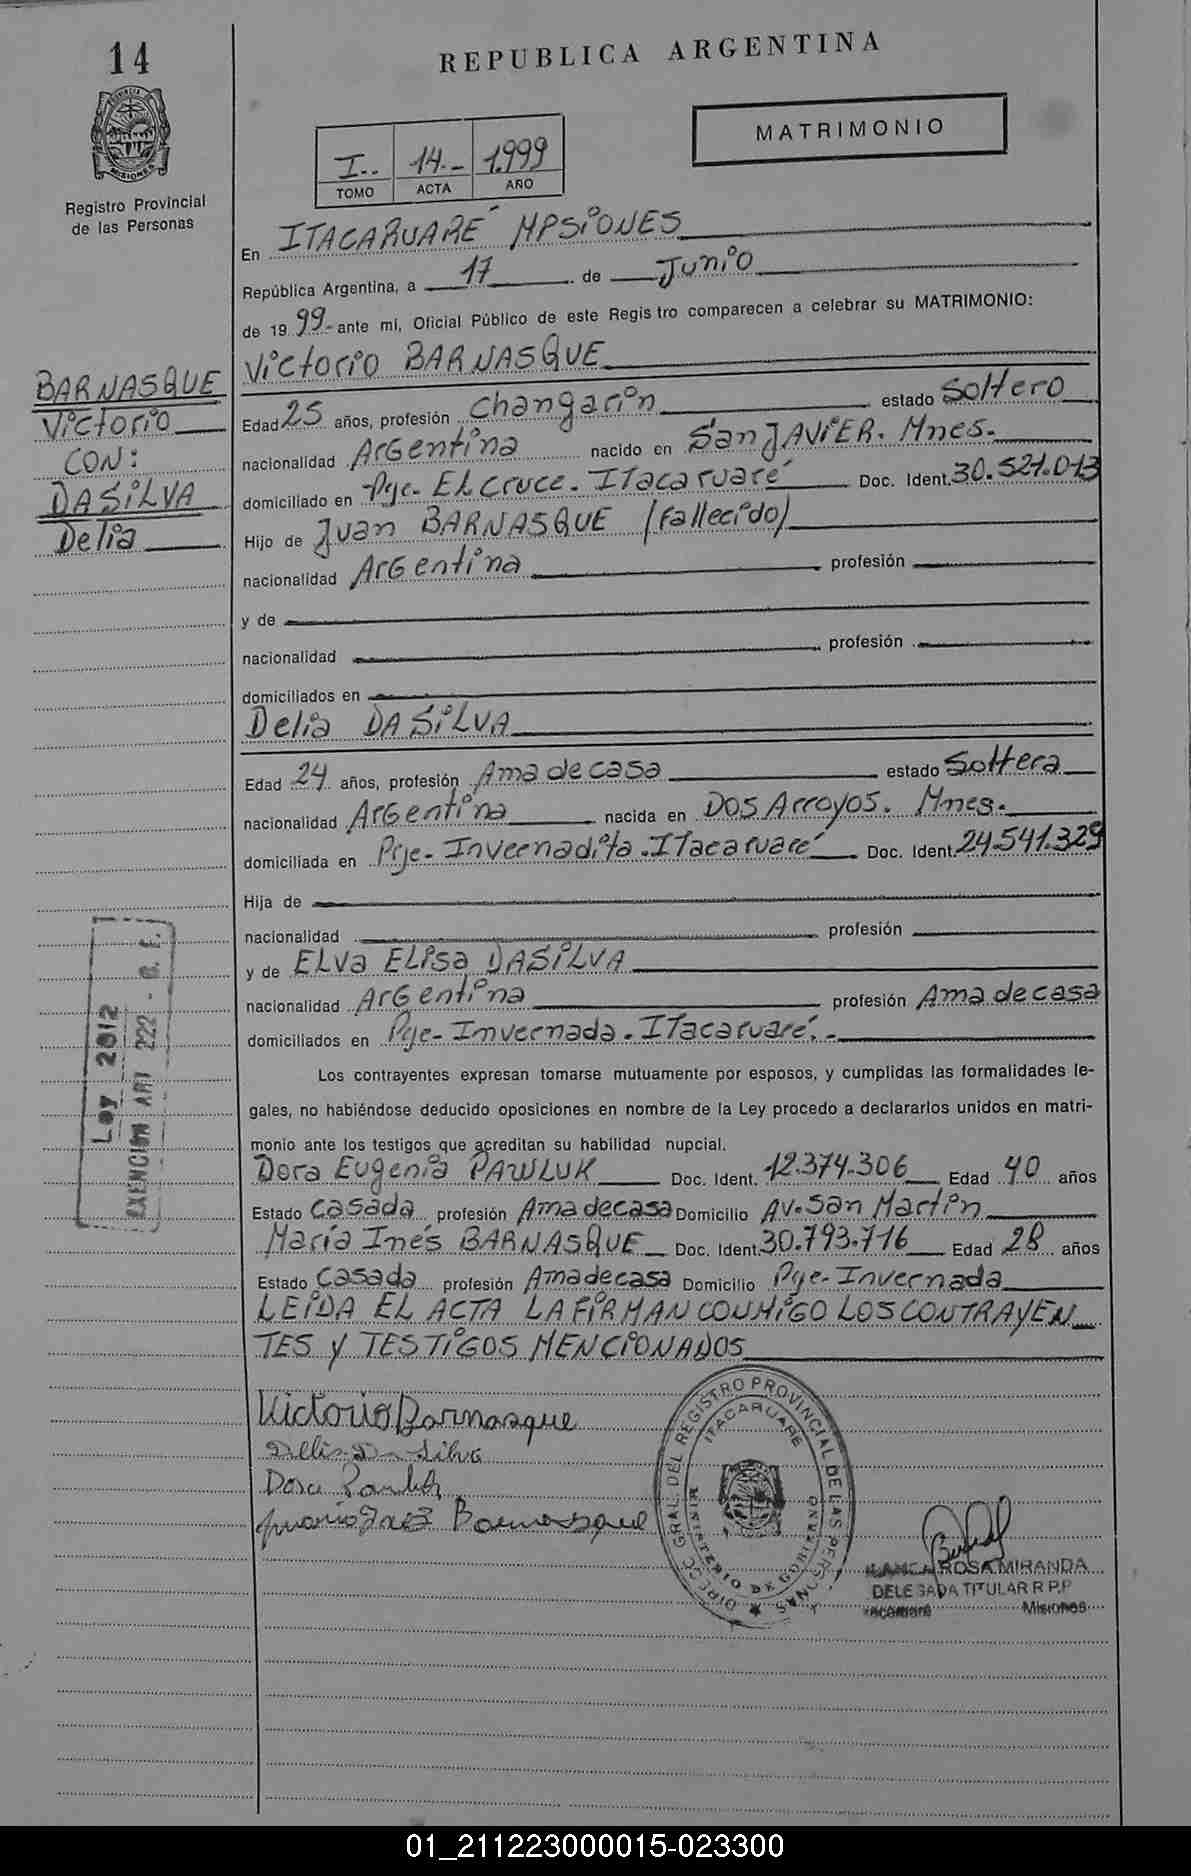 14
REPUBLICA ARGENTINA
PROVINCIA DE
MISIONES
Registro Provincial
de las Personas
I.. 14.- 1.999
TOMO ACTA AÑO
MATRIMONIO
En ITACARUARÉ MPSIONES
República Argentina, a 17 de Junio
de 1999- ante mi, Oficial Público de este Registro comparecen a celebrar su MATRIMONIO:
Victorio BARNASQUE
BARNASQUE
Victorio
CON:
DASILVA
Delia
Edad 25 años, profesión Changarin estado Soltero
nacionalidad Argentina nacido en San JAViER. Mnes.
domiciliado en Pje. El Cruce. Itacaruaré Doc. Ident. 30.521.013
Hijo de Juan BARNASQUE (fallecido)
nacionalidad Argentina profesión
y de
nacionalidad profesión
domiciliados en
Delia DASiLVA
Edad 24 años, profesión Ama de casa estado Soltera
nacionalidad Argentina nacida en Dos Arroyos. Mnes.
domiciliada en Pje- Invernadita. Itacaruaré Doc. Ident. 24.541.329
Hija de
nacionalidad profesión
y de ELva ELisa DASiLVA
nacionalidad Argentina profesión Ama de casa
domiciliados en Pje- Invernada. Itacaruaré.-
Ley 2812
EXENCION ART 222 - C. F.
Los contrayentes expresan tomarse mutuamente por esposos, y cumplidas las formalidades le-
gales, no habiéndose deducido oposiciones en nombre de la Ley procedo a declararlos unidos en matri-
monio ante los testigos que acreditan su habilidad nupcial.
Dora Eugenia PAWLUK Doc. Ident. 12.374.306 Edad 40 años
Estado Casada profesión Ama de casa Domicilio Av. San Martin
María Inés BARNASQUE Doc. Ident. 30.793.716 Edad 28 años
Estado Casada profesión Ama de casa Domicilio Pje- Invernada
LEiDA EL ACTA LA FiRMAN CONMiGO LOS CONTRAYEN
TES y TESTiGOS MENCiONADOS
Victorio Barnasque
Delia Da Silva
Dora Pawluk
Barnasque
DIREC. GRAL. DEL REGISTRO PROVINCIAL DE LAS PERSONAS
ITACARUARE
MINISTERIO DE GOBIERNO
BLANCA ROSA MIRANDA
DELEGADA TITULAR R.P.P
Itacaruaré Misiones
01_211223000015-023300